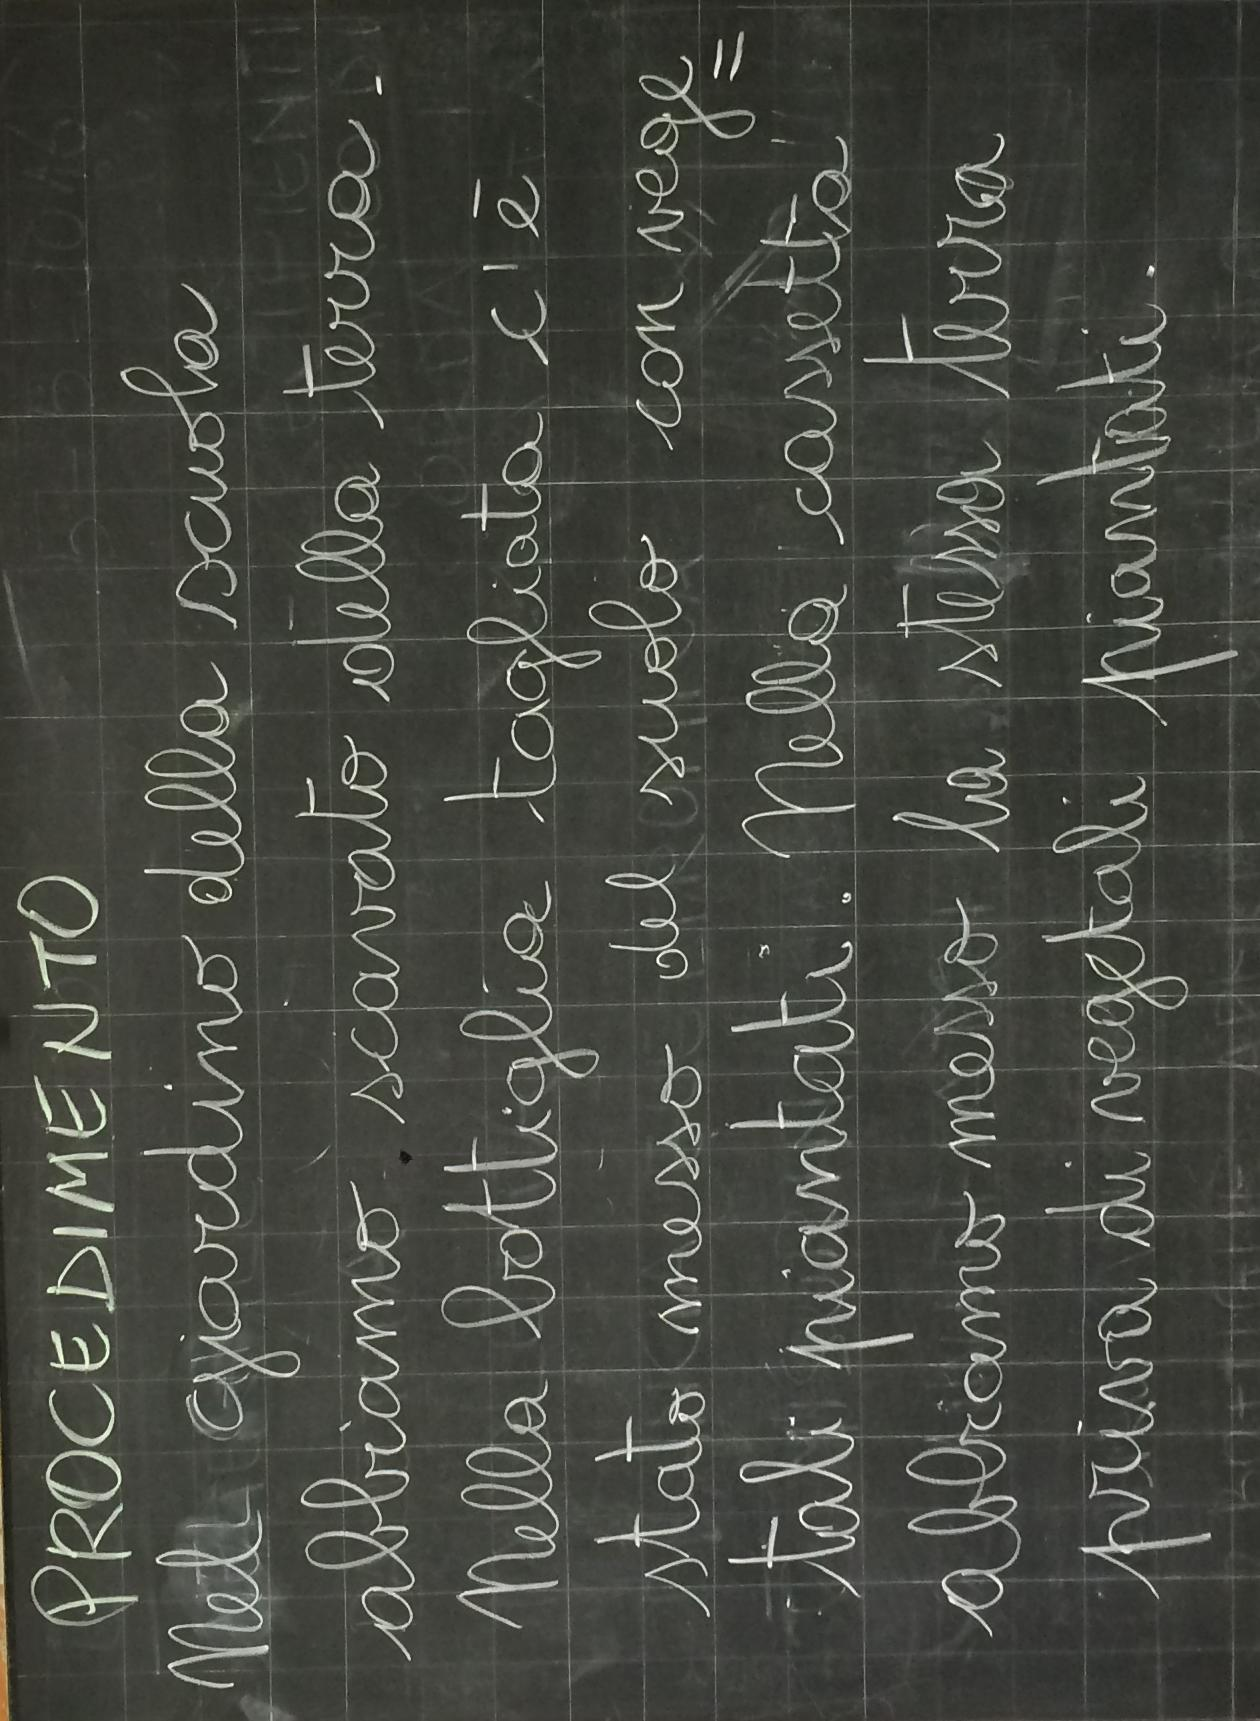 PROCEDIMENTO
Nel giardino della scuola
abbiamo scavato della terra.
Nella bottiglia tagliata c'è
stato messo del suolo con vege=
tali piantati. Nella cassetta
abbiamo messo la stessa terra
priva di vegetali piantati.